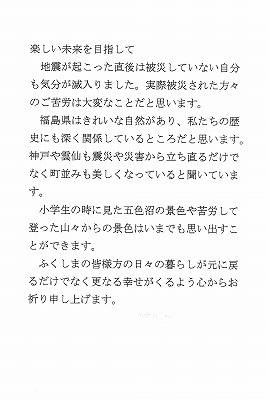 楽しい未来を目指して
　地震が起こった直後は被災していない自分
も気分が滅入りました。実際被災された方々
のご苦労は大変なことだと思います。
　福島県はきれいな自然があり、私たちの歴
史にも深く関係しているところだと思います。
神戸や雲仙も震災や災害から立ち直るだけで
なく町並みも美しくなっていると聞いていま
す。
　小学生の時に見た五色沼の景色や苦労して
登った山々からの景色はいまでも思い出すこ
とができます。
　ふくしまの皆様方の日々の暮らしが元に戻
るだけでなく更なる幸せがくるよう心からお
祈り申し上げます。